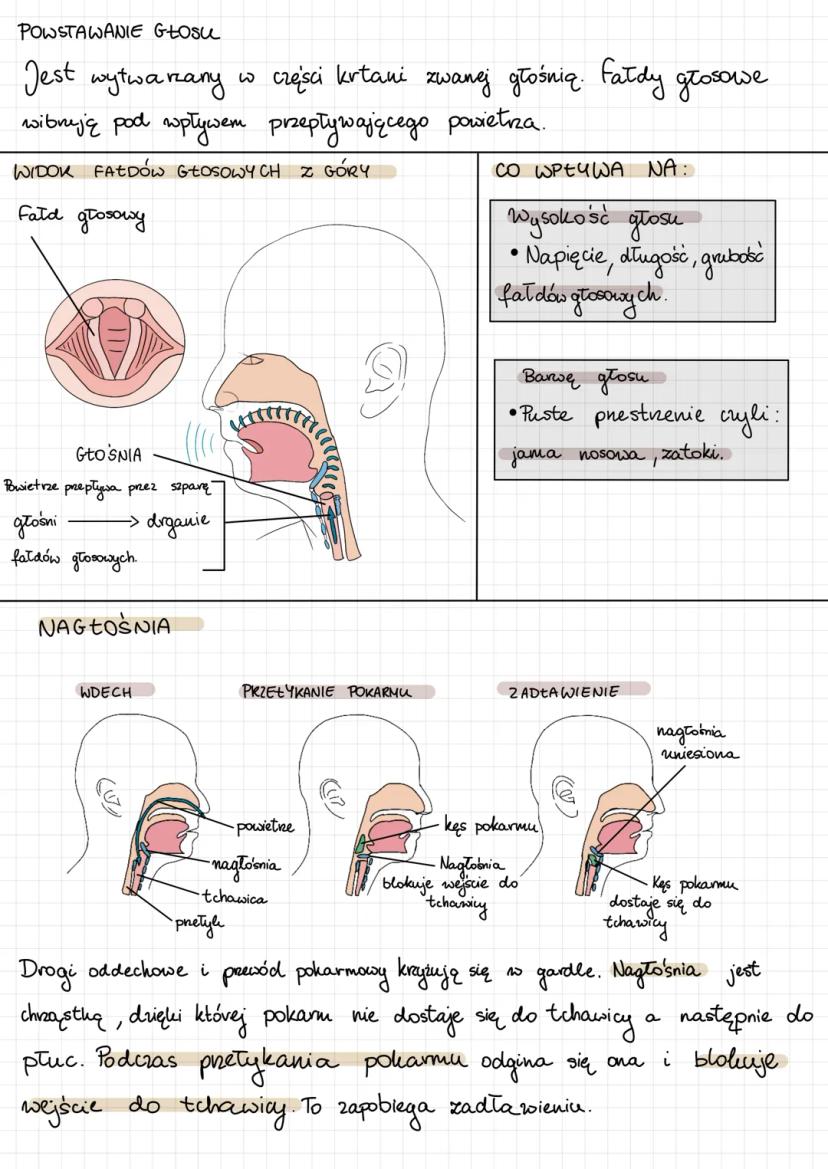 POWSTAWANIE GŁOSU
Jest wytwarzany w części krtani zwanej głośnią. Fałdy głosowe
wibrują pod wpływem przepływającego powietrza.
WIDOK FAŁDÓW GŁOSOWYCH Z GÓRY
Fałd głosowy
GŁOŚNIA
Powietrze przepływa przez szparę
głośni → drganie
fałdów głosowych.
CO WPŁYWA NA:
Wysokość głosu
• Napięcie, długość, grubość
fałdów głosowych.
Barwę głosu
• Puste przestrzenie czyli:
jama nosowa, zatoki.
NAGŁOŚNIA
WDECH
powietrze
nagłośnia
tchawica
przełyk
PRZEŁYKANIE POKARMU
kęs pokarmu
Nagłośnia
blokuje wejście do
tchawicy
ZADŁAWIENIE
nagłośnia
uniesiona
Kęs pokarmu
dostaje się do
tchawicy
Drogi oddechowe i przewód pokarmowy krzyżują się w gardle. Nagłośnia jest
chrząstką, dzięki której pokarm nie dostaje się do tchawicy a następnie do
płuc. Podczas przełykania pokarmu odgina się ona i blokuje
wejście do tchawicy. To zapobiega zadławieniu.